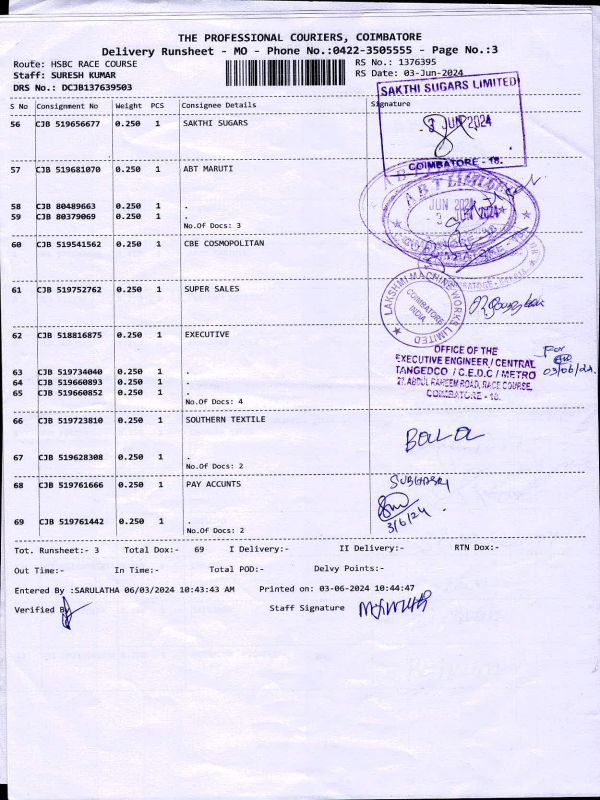 THE PROFESSIONAL COURIERS, COIMBATORE
Delivery Runsheet - MO - Phone No.:0422-3505555 - Page No.:3
Route: HSBC RACE COURSE RS No.: 1376395
Staff: SURESH KUMAR RS Date: 03-Jun-2024
DRS No.: DCJB137639503
S No Consignment No Weight PCS Consignee Details Signature
56 CJB 519656677 0.250 1 SAKTHI SUGARS
SAKTHI SUGARS LIMITED
3 JUN 2024
COIMBATORE - 18.
57 CJB 519681070 0.250 1 ABT MARUTI
ABT LIMITED
JUN 2024
3 JUN 2024
58 CJB 80489663 0.250 1 .
59 CJB 80379069 0.250 1 .
No.Of Docs: 3
60 CJB 519541562 0.250 1 CBE COSMOPOLITAN
61 CJB 519752762 0.250 1 SUPER SALES
LAKSHMI MACHINE WORKS LIMITED
COIMBATORE
INDIA
62 CJB 518816875 0.250 1 EXECUTIVE
OFFICE OF THE
EXECUTIVE ENGINEER / CENTRAL
TANGEDCO / C.E.D.C / METRO
27, ABDUL RAHEEM ROAD, RACE COURSE,
COIMBATORE - 18.
For
03/06/24
63 CJB 519734040 0.250 1 .
64 CJB 519660893 0.250 1 .
65 CJB 519660852 0.250 1 .
No.Of Docs: 4
66 CJB 519723810 0.250 1 SOUTHERN TEXTILE
67 CJB 519628308 0.250 1 .
No.Of Docs: 2
68 CJB 519761666 0.250 1 PAY ACCUNTS
3/6/24
69 CJB 519761442 0.250 1 .
No.Of Docs: 2
Tot. Runsheet:- 3 Total Dox:- 69 I Delivery:- II Delivery:- RTN Dox:-
Out Time:- In Time:- Total POD:- Delvy Points:-
Entered By :SARULATHA 06/03/2024 10:43:43 AM Printed on: 03-06-2024 10:44:47
Verified By Staff Signature